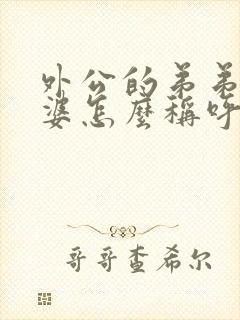 外公的弟弟
婆怎麼稱呼
哥哥查希尔